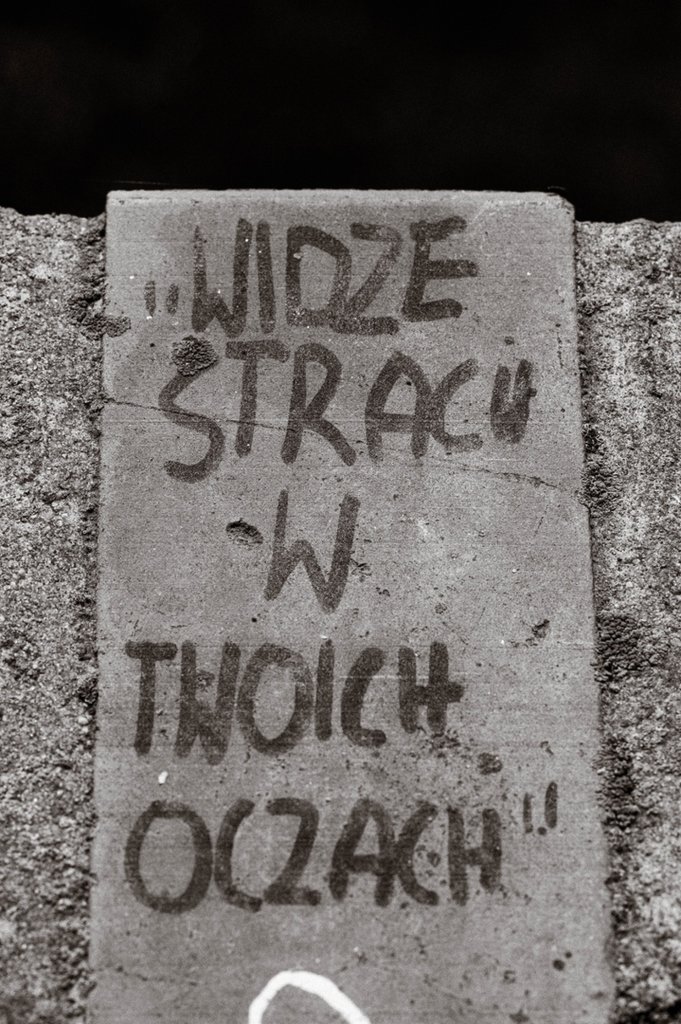 „WIDZE
STRACH
W
TWOICH
OCZACH"